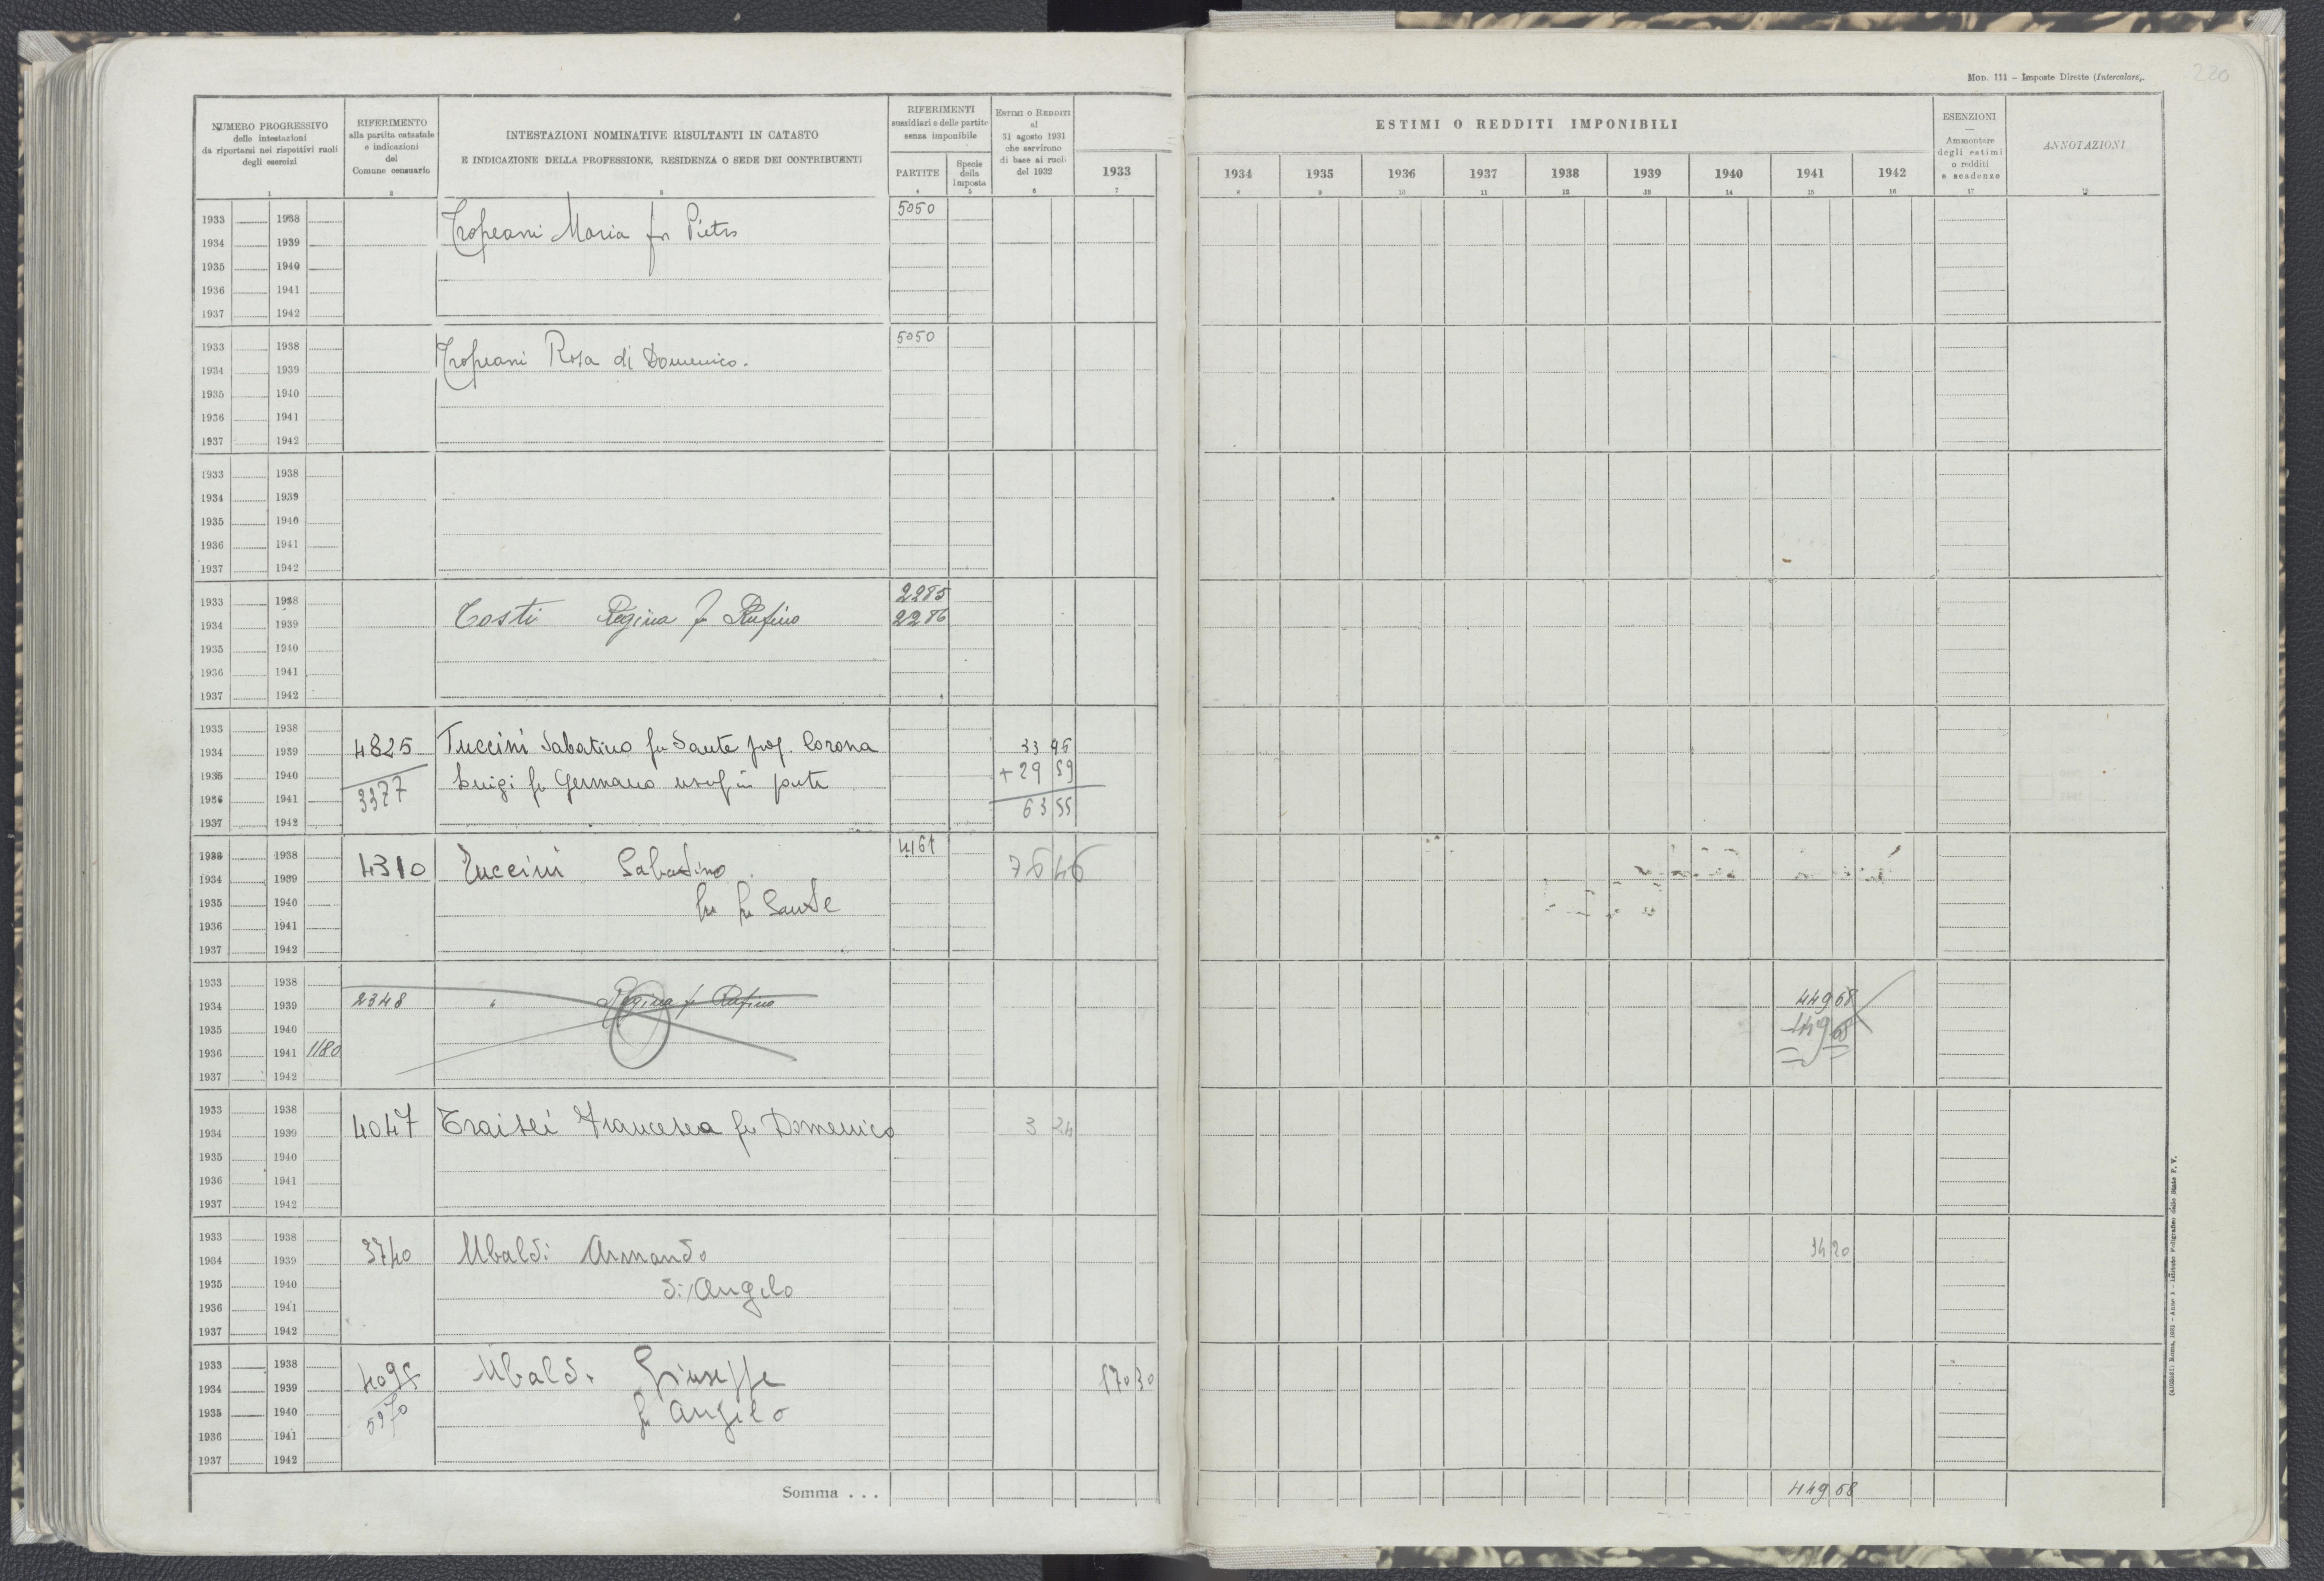 Mod. 111 – Imposte Dirette (Intercalare).
220
NUMERO PROGRESSIVO
delle intestazioni
da riportarsi nei rispettivi ruoli
degli esercizi
1
RIFERIMENTO
alla partita catastale
e indicazioni
del
Comune censuario
2
INTESTAZIONI NOMINATIVE RISULTANTI IN CATASTO
E INDICAZIONE DELLA PROFESSIONE, RESIDENZA O SEDE DEI CONTRIBUENTI
3
RIFERIMENTI
sussidiari e delle partite
senza imponibile
PARTITE
4
Specie
della
imposta
5
ESTIMI O REDDITI
al
31 agosto 1931
che servirono
di base ai ruoli
del 1932
6
1933
7
ESTIMI O REDDITI IMPONIBILI
1934 1935 1936 1937 1938 1939 1940 1941 1942
8 9 10 11 12 13 14 15 16
ESENZIONI
Ammontare
degli estimi
o redditi
e scadenze
17
ANNOTAZIONI
1933 1938 5050
Tropeani Maria fu Pietro
1934 1939
1935 1940
1936 1941
1937 1942
1933 1938 5050
1934 1939 Tropeani Rosa di Domenico.
1935 1940
1936 1941
1937 1942
1933 1938
1934 1939
1935 1940
1936 1941
1937 1942
1933 1938 2285
1934 1939 Tosti Regina fu Rufino 2286
1935 1940
1936 1941
1937 1942
1933 1938
1934 1939 4825 Tuccini Sabatino fu Sante prop. Corona 33 96
1935 1940 Luigi fu Germano usuf in parte + 29 59
1936 1941 3377 63 55
1937 1942
1933 1938 4161
1934 1939 4310 Tuccini Sabatino 76 46
1935 1940 fu fu Sante
1936 1941
1937 1942
1933 1938
1934 1939 2348 " Regina fu Rufino 449 68
1935 1940 449 68
1936 1941 1180
1937 1942
1933 1938
1934 1939 4047 Francesca fu Domenico 3 24
1935 1940
1936 1941
1937 1942
1933 1938
1934 1939 3740 Ubaldi Armando 14 20
1935 1940 di Angelo
1936 1941
1937 1942
1933 1938
1934 1939 Ubaldi Giuseppe 170 30
1935 1940 5970 fu Angelo
1936 1941
1937 1942
Somma . . . 449 68